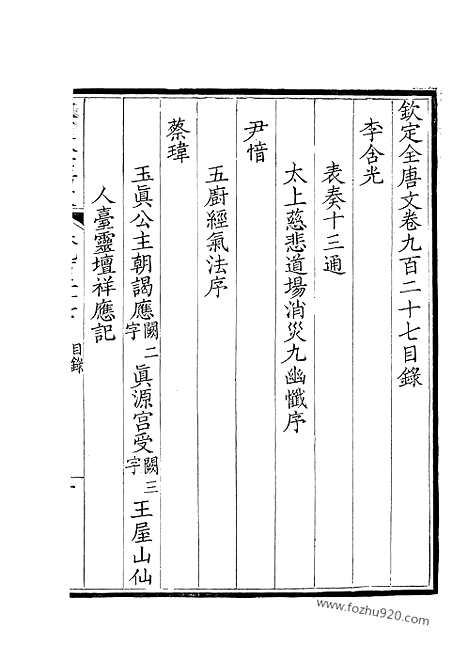 欽定全唐文卷九百二十七目錄
李含光
表奏十三通
太上慈悲道場消災九幽懺序
尹愔
五廚經氣法序
蔡瑋
玉眞公主朝謁應闕二字眞源宮受闕三字王屋山仙
人臺靈壇祥應記
目錄
一
www.fozhu920.com